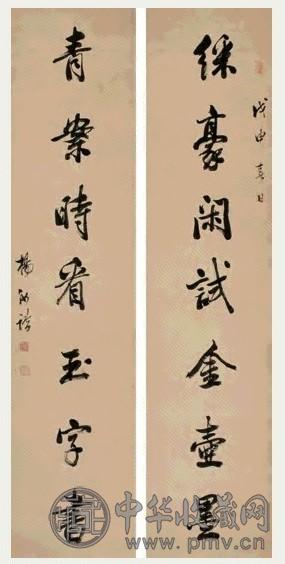 綵豪閑試金壺墨
戊申春日
青案時看玉字書
楊
中华收藏网
www.pmv.cn